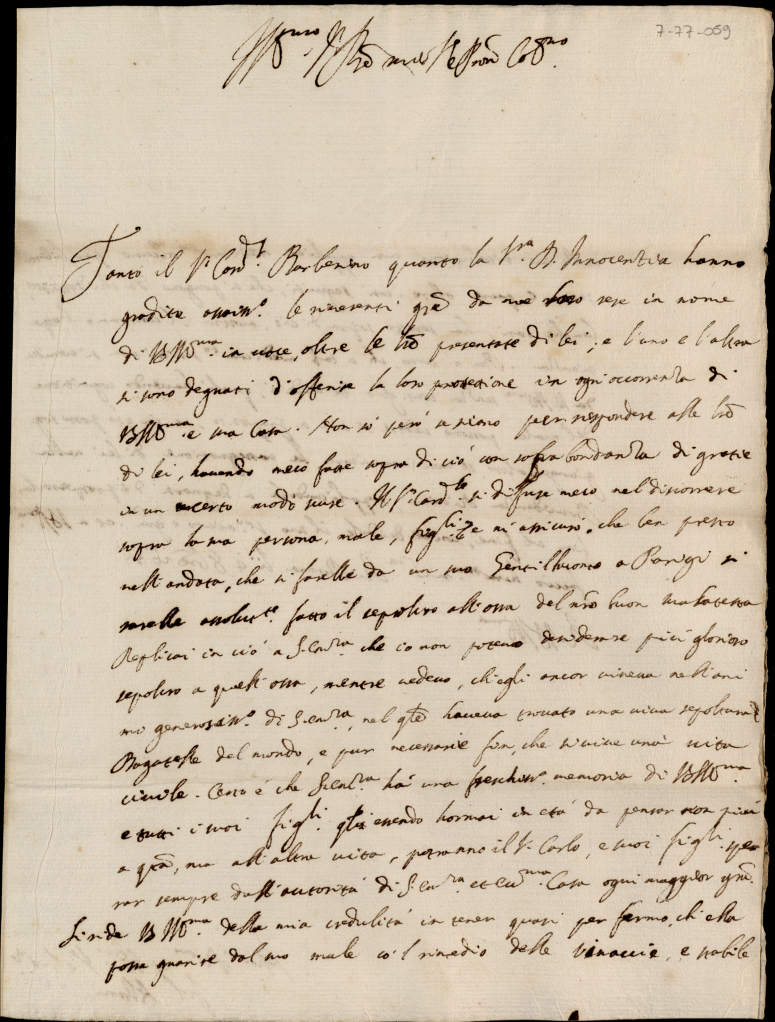 7-77-059
Ill.mo Sr. e Pron Col.mo
Tanto il Sr. Card.l Barberino quanto la Sra. D. Innocentia hanno
gradite assiss.o le riverenti grẽ da me loro rese in nome
di V.S. Ill.ma in voce, oltre le lrẽ presentate di lei; e l'uno e l'altra
si sono degnati d'offerire la loro protettione in ogni occorrenza di
V.S. Ill.ma e sua Casa. Non sò però se siano per rispondere alle lrẽ
di lei, havendo meco fatte sopra di ciò con sopra bondanza di gratie
in un certo modo scuse. Il Sr. Card.le si diffuse meco nel discorrere
sopra la sua persona, male, figli, e mi assicurò, che ben presto
nell'andata, che si farebbe da un suo Gentilhuomo a Parigi si
sarebbe assolut.e fatto il sepolcro all'ossa del nrõ buon Malatesta
Replicai in ciò a S. Em.za che io non potevo desiderare più glorioso
sepolcro a quell'ossa, mentre vedevo, ch'egli ancor viveva nell'ani
mo generosiss.o di S. Em.za, nel qlẽ haveva trovato una viva sepoltura
Bagatelle del mondo, e pur necessarie fin, che si vive una vita
civile. Certo è che S. Em.za hà una freschiss.a memoria di V.S. Ill.ma
e tutti i suoi figli, essendo hormai in età da pensar non più
a qstã, ma all'altra vita, potranno il Sr. Carlo, e suoi figli spe
rar sempre dall'autorità di S. Em.za et Em.ma Casa ogni maggior grã.
Si ride V.S. Ill.ma della mia credulità in tener quasi per fermo, ch'ella
possa guarire dal suo male co'l rimedio delle vinaccie, e stabile